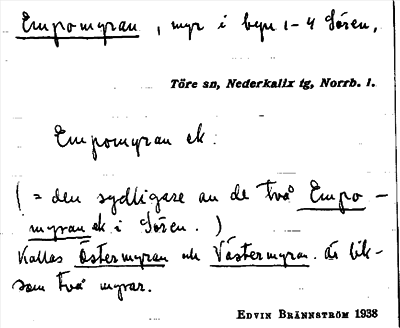 Empomyran, myr i byn 1-4 Sören,
Töre sn, Nederkalix tg, Norrb. l.
Empomyran ek.
(= den sydligare av de två Empo-
myran ek i Sören.)
Kallas Östermyran och Västermyran. är lik-
som två myrar.
EDVIN BRÄNNSTRÖM 1938